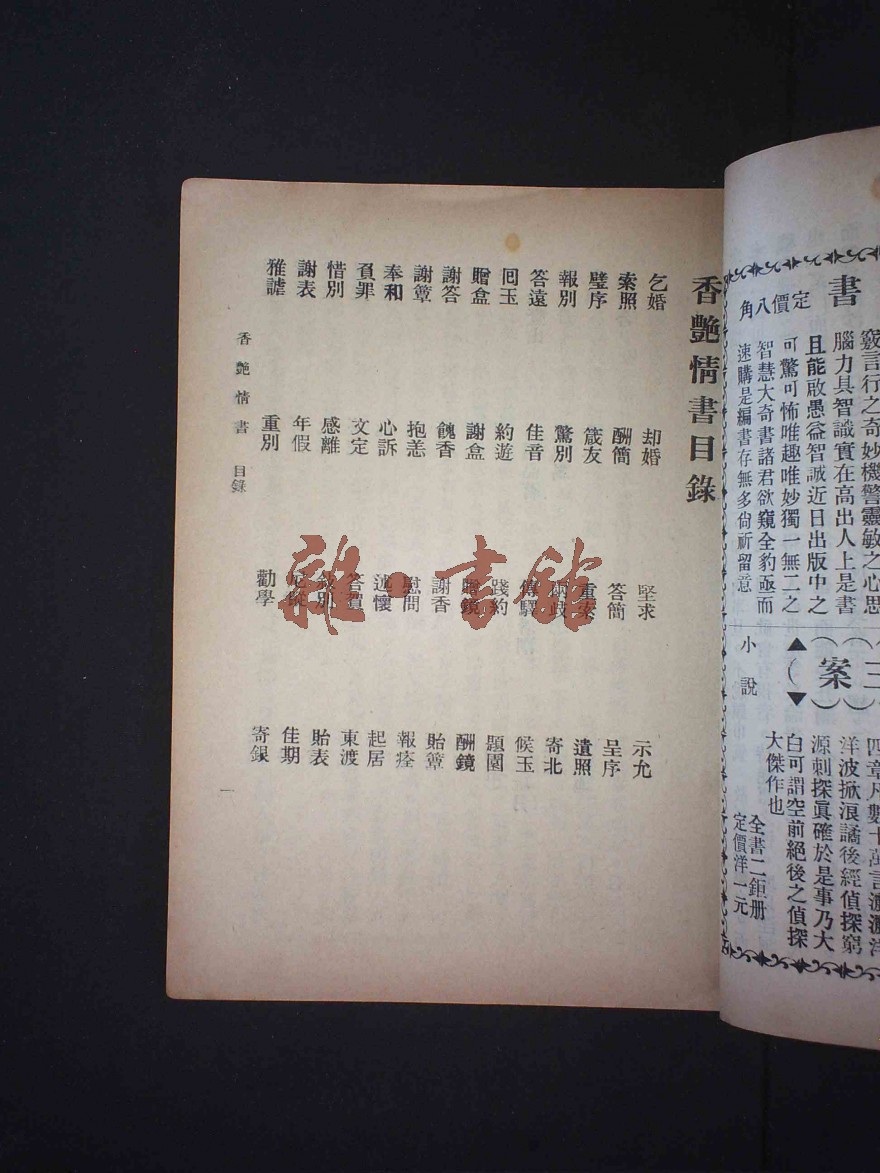 書
定價八角
竅言行之奇妙機警靈敏之心思
腦力具智識實在高出人上是書
且能啟愚益智誠近日出版中之
可驚可怖唯趣唯妙獨一無二之
智慧大奇書諸君欲窺全豹亟而
速購是編書存無多尙祈留意
三
案
小說
四章凡數十萬言濃濃洋
洋波掀浪譎後經偵探窮
源刺探眞確於是事乃大
白可謂空前絕後之偵探
大傑作也
全書二鉅册
定價洋一元
香艷情書目錄
乞婚 却婚 堅求 示允
索照 酬簡 答簡 呈序
璧序 箴友 重案 遺照
報別 驚別 寄北
答遠 佳音 傳驛 候玉
囘玉 約遊 踐約 題園
贈盒 謝盒 贈鏡 酬鏡
謝答 餽香 謝香 貽簟
謝簟 抱恙 慰問 報痊
奉和 心訴 述懷 起居
負罪 文定 答賀 東渡
惜別 感離 敘別 貽表
謝表 年假 佳期
雅謔 重別 勸學 寄銀
香艷情書 目錄
一
雜·書館